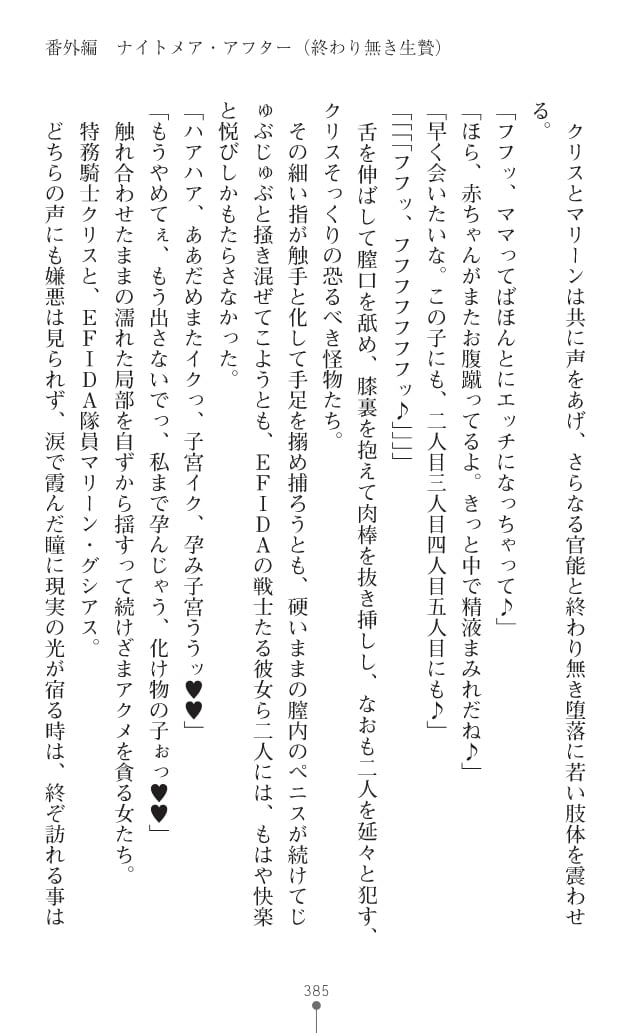 番外編　ナイトメア・アフター（終わり無き生贄）
　クリスとマリーンは共に声をあげ、さらなる官能と終わり無き堕落に若い肢体を震わせ
る。
「フフッ、ママってばほんとにエッチになっちゃって♪」
「ほら、赤ちゃんがまたお腹蹴ってるよ。きっと中で精液まみれだね♪」
「早く会いたいな。この子にも、二人目三人目四人目五人目にも♪」
「「「「フフッ、フフフフフフッ♪」」」」
　舌を伸ばして膣口を舐め、膝裏を抱えて肉棒を抜き挿しし、なおも二人を延々と犯す、
クリスそっくりの恐るべき怪物たち。
　その細い指が触手と化して手足を搦め捕ろうとも、硬いままの膣内のペニスが続けてじ
ゅぶじゅぶと掻き混ぜてこようとも、ＥＦＩＤＡの戦士たる彼女ら二人には、もはや快楽
と悦びしかもたらさなかった。
「ハアハア、ああだめまたイクっ、子宮イク、孕み子宮ううッ♥♥」
「もうやめてぇ、もう出さないでっ、私まで孕んじゃう、化け物の子ぉっ♥♥」
　触れ合わせたままの濡れた局部を自ずから揺すって続けざまアクメを貪る女たち。
　特務騎士クリスと、ＥＦＩＤＡ隊員マリーン・グシアス。
　どちらの声にも嫌悪は見られず、涙で霞んだ瞳に現実の光が宿る時は、終ぞ訪れる事は
385